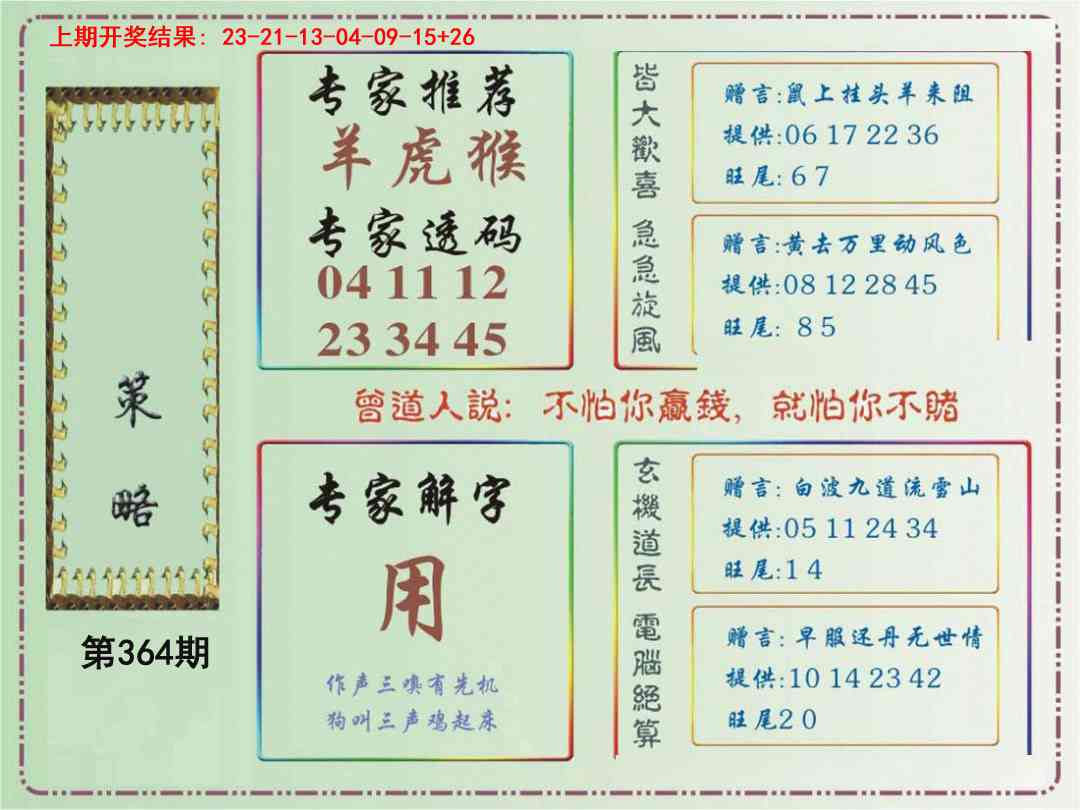 上期开奖结果: 23-21-13-04-09-15+26
策略
第364期
专家推荐
羊虎猴
专家透码
04 11 12
23 34 45
皆大歡喜
赠言:鼠上挂头羊来阻
提供:06 17 22 36
旺尾: 6 7
急急旋風
赠言:黄去万里动风色
提供:08 12 28 45
旺尾: 8 5
曾道人説: 不怕你贏錢, 就怕你不賭
专家解字
用
作声三唤有先机
狗叫三声鸡起床
玄機道長
赠言: 白波九道流雪山
提供:05 11 24 34
旺尾:1 4
電腦絕算
赠言: 早服还丹无世情
提供:10 14 23 42
旺尾2 0